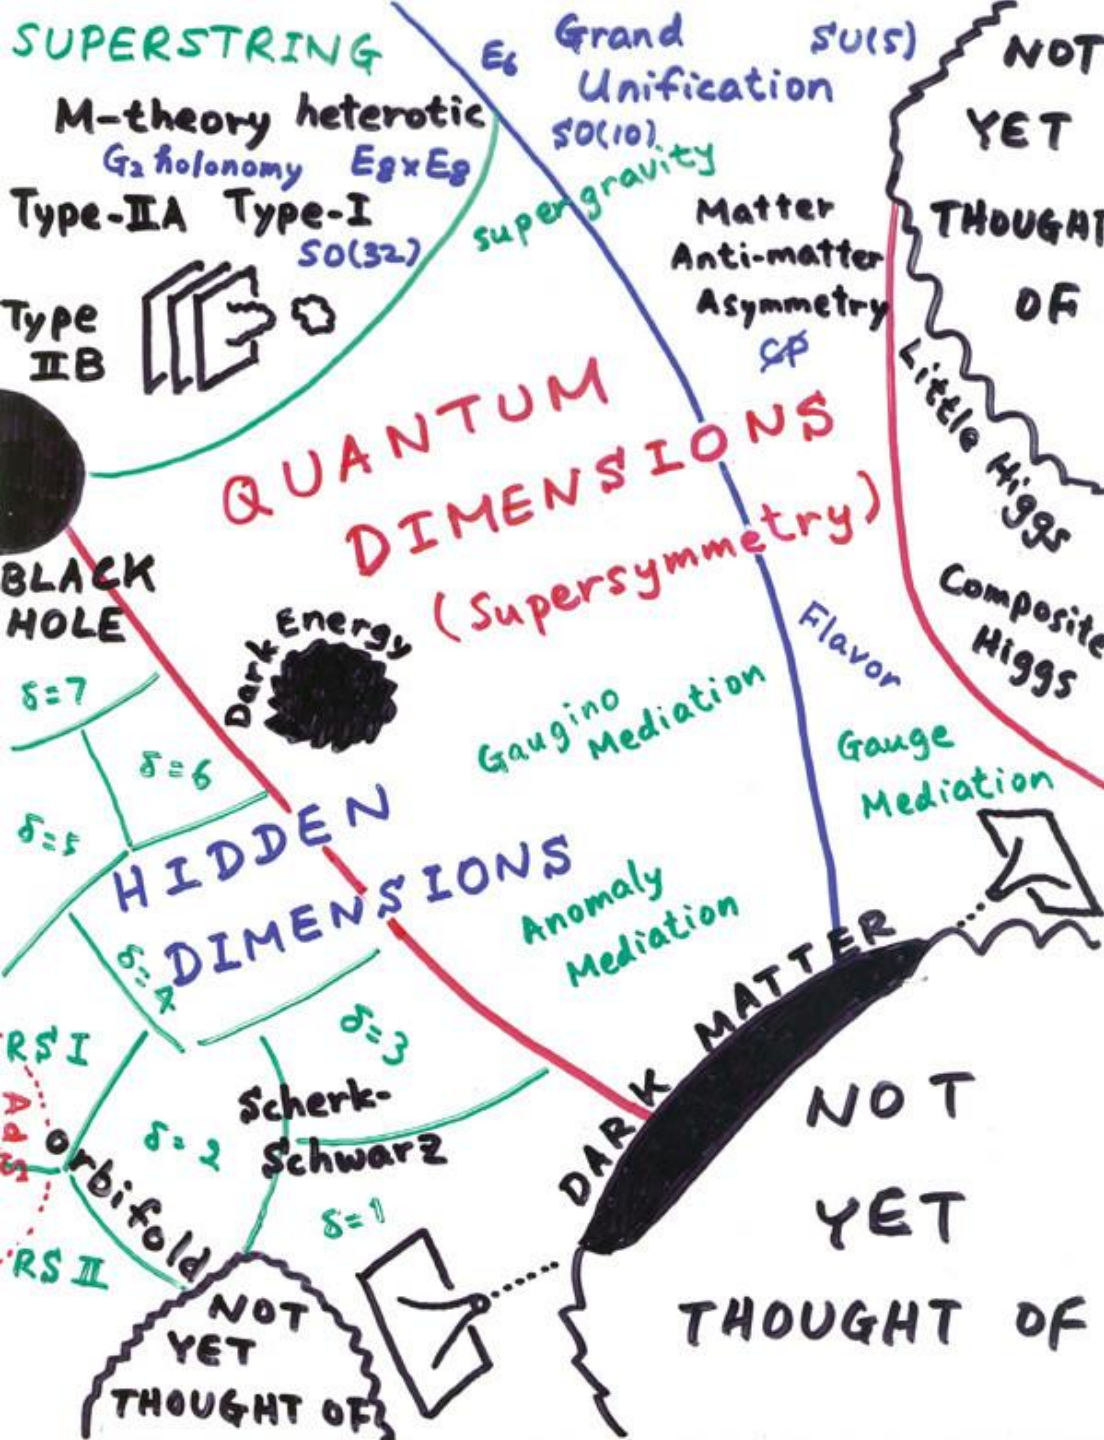 SUPERSTRING
M-theory heterotic
G₂ holonomy E₈×E₈
Type-IIA Type-I
SO(32)
Type
IIB
E₆
Grand
Unification
SU(5)
SO(10)
supergravity
Matter
Anti-matter
Asymmetry
CP
NOT
YET
THOUGHT
OF
Little Higgs
Composite
Higgs
QUANTUM
DIMENSIONS
(Supersymmetry)
BLACK
HOLE
Dark Energy
Flavor
Gaugino
Mediation
Gauge
Mediation
Anomaly
Mediation
δ=7
δ=6
δ=5
HIDDEN
DIMENSIONS
δ=4
δ=3
RS I
AdS
Orbifold
δ=2
Scherk-
Schwarz
δ=1
RS II
DARK MATTER
NOT
YET
THOUGHT OF
NOT
YET
THOUGHT OF